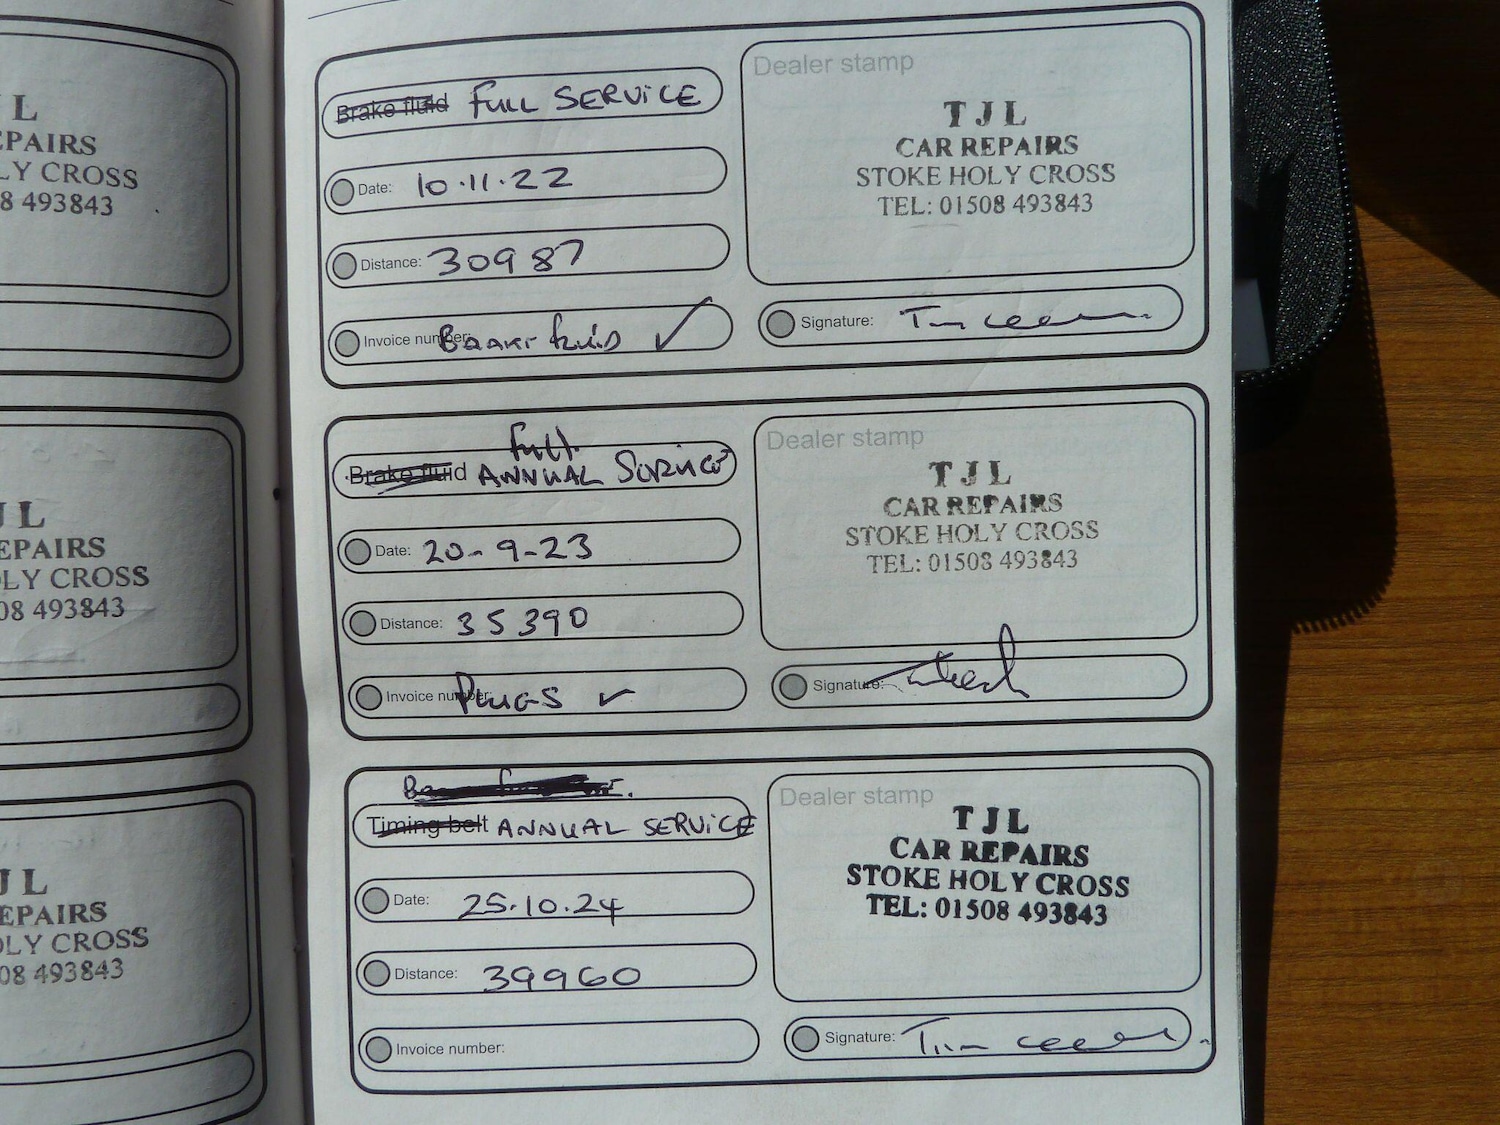 L
EPAIRS
LY CROSS
8 493843
J L
EPAIRS
OLY CROSS
08 493843
J L
EPAIRS
OLY CROSS
08 493843
Brake fluid FULL SERVICE
Date: 10.11.22
Distance: 30987
Invoice number: Brake fluid ✓
Dealer stamp
T J L
CAR REPAIRS
STOKE HOLY CROSS
TEL: 01508 493843
Signature:
Full
Brake fluid ANNUAL SERVICE
Date: 20-9-23
Distance: 35390
Invoice number: PLUGS ✓
Dealer stamp
T J L
CAR REPAIRS
STOKE HOLY CROSS
TEL: 01508 493843
Signature:
Timing belt ANNUAL SERVICE
Date: 25.10.24
Distance: 39960
Invoice number:
Dealer stamp
T J L
CAR REPAIRS
STOKE HOLY CROSS
TEL: 01508 493843
Signature: Tim